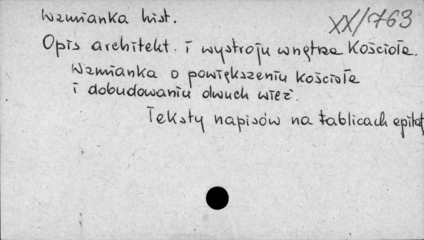 Wzmianka hist.
XX/763
Opis architekt. i wystroju wnętrza Kościoła.
Wzmianka o powiększeniu kościoła
i dobudowaniu dwuch wież.
Teksty napisów na tablicach epitaf